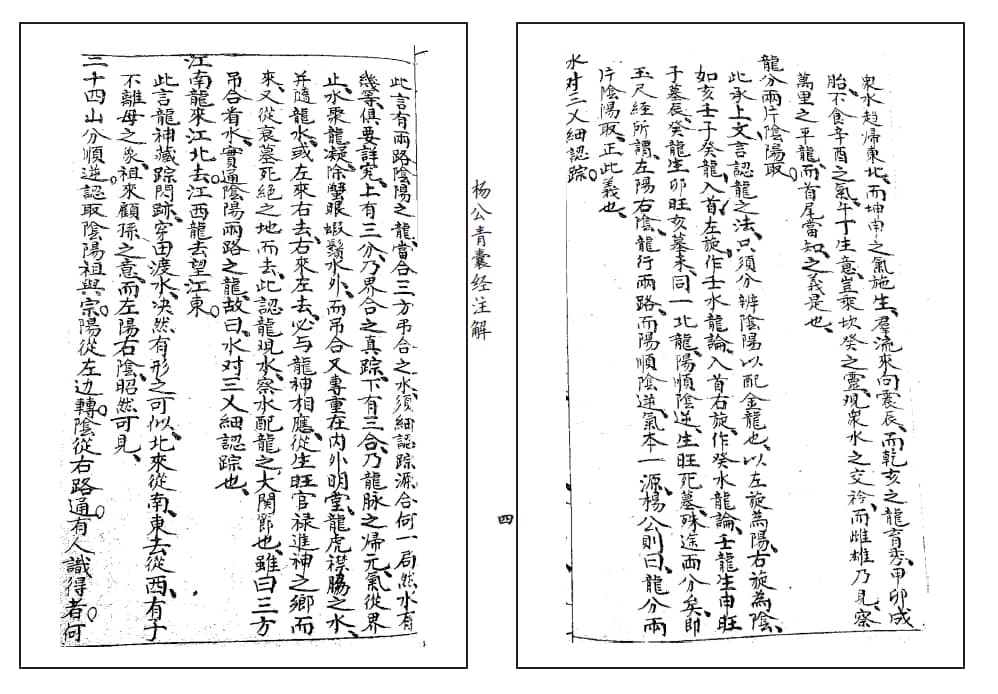 泉水趋歸東北、而坤申之氣施生、羣流來向震辰、而乾亥之龍育秀、甲卯成
胎、不食辛酉之氣、午丁生意、豈乘坎癸之靈、观衆水之交衿、而雌雄乃見、察
萬里之平龍、而首尾當知之義是也、
龍分兩片陰陽取。
此承上文言認龍之法、只須分辨陰陽以配金龍也、以左旋為陽、右旋為陰、
如亥壬子癸龍、入首左旋、作壬水龍論、入首右旋、作癸水龍論、壬龍生申旺
子墓辰、癸龍生卯旺亥墓未、同一北龍、陽順陰逆、生旺死墓、殊途而分矣、即
玉尺經所謂、左陽右陰、龍行兩路、而陽順陰逆、氣本一源、楊公則曰、龍分兩
片陰陽取、正此義也、
水对三叉細認踪。
杨公青囊经注解
四
此言有兩路陰陽之龍、當合三方弔合之水、須細認踪源合何一局、然水有
幾等、俱要詳究、上有三分、乃界合之真踪、下有三合、乃龍脉之帰元、氣從界
止、水聚龍凝、除蟹眼蝦鬚水外、而吊合又專重在内外明堂、龍虎襟脇之水、
并隨龍水、或左來右去、右來左去、必与龍神相應、從生旺官禄進神之鄉而
來、又從衰墓死絶之地而去、此認龍观水、察水配龍之大関節也、雖曰三方
吊合看水、實通陰陽兩路之龍、故曰、水对三叉細認踪也、
江南龍來江北去。江西龍去望江東。
此言龍神藏踪閃跡、穿田渡水、决然有形之可似、北來從南、東去從西、有子
不離母之象、祖來顧孫之意、而左陽右陰、昭然可見、
二十四山分順逆。認取陰陽祖與宗。陽從左边轉。陰從右路通。有人識得者。何